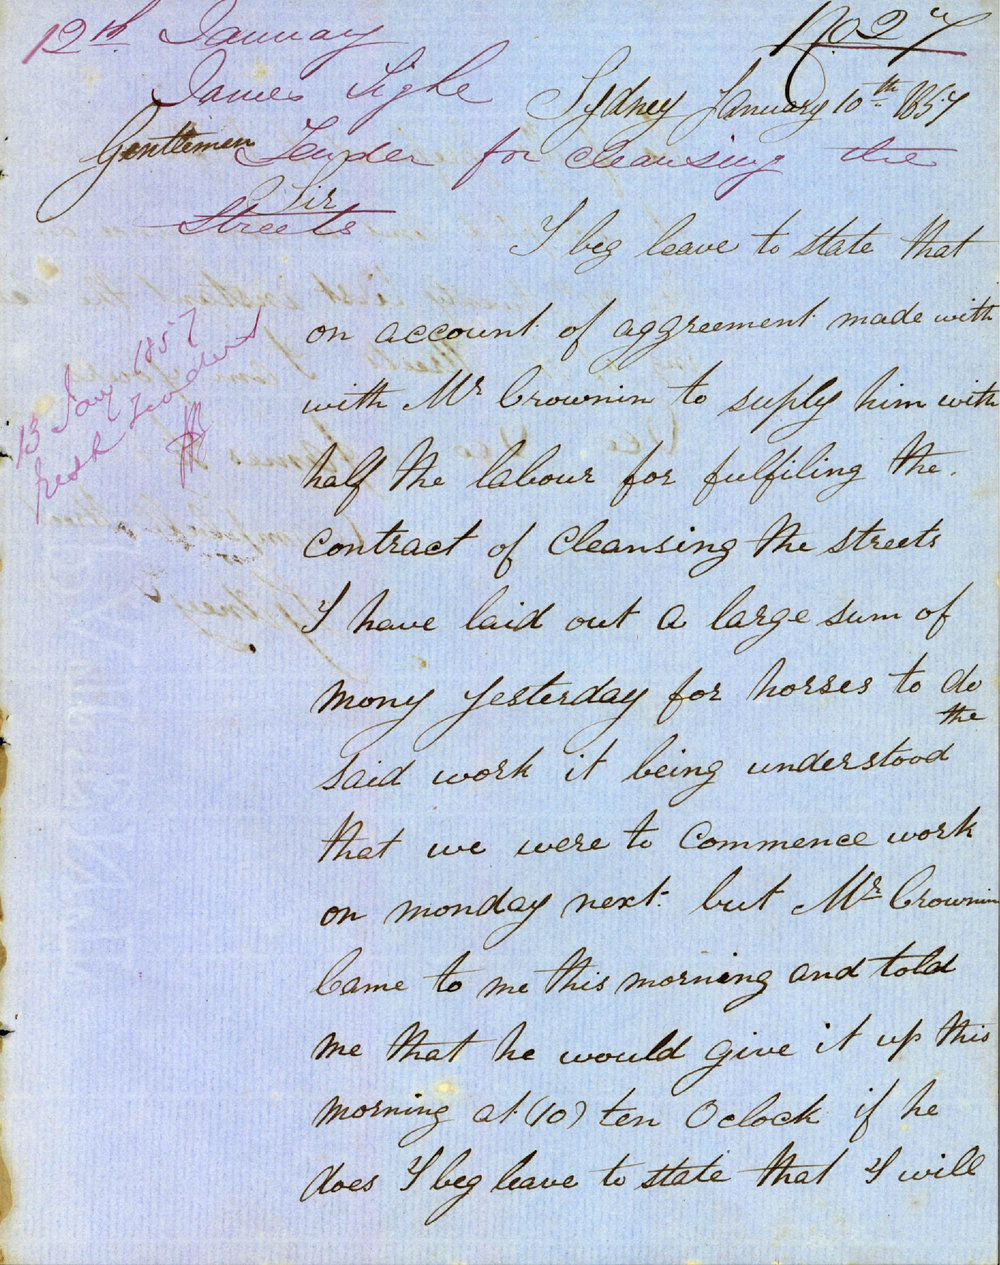 12th January
No 27
James Tighe
Sydney January 10th 1857
Gentlemen
Tender for cleansing the
Sir
Streets
I beg leave to state that
on account of aggreement made with
with Mr Crownin to suply him with
half the labour for fulfiling the
contract of cleansing the streets
I have laid out a large sum of
mony yesterday for horses to do
the
said work it being understood
that we were to commence work
on monday next but Mr Crownin
Came to me this morning and told
me that he would give it up this
morning at (10) ten Oclock if he
does I beg leave to state that I will
13 Jany 1857
fresh Tenders